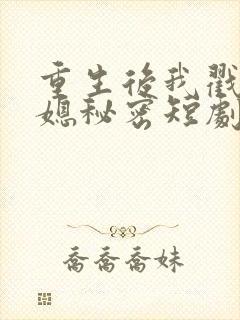 重生後我戳
媳秘密短劇
喬喬喬妹